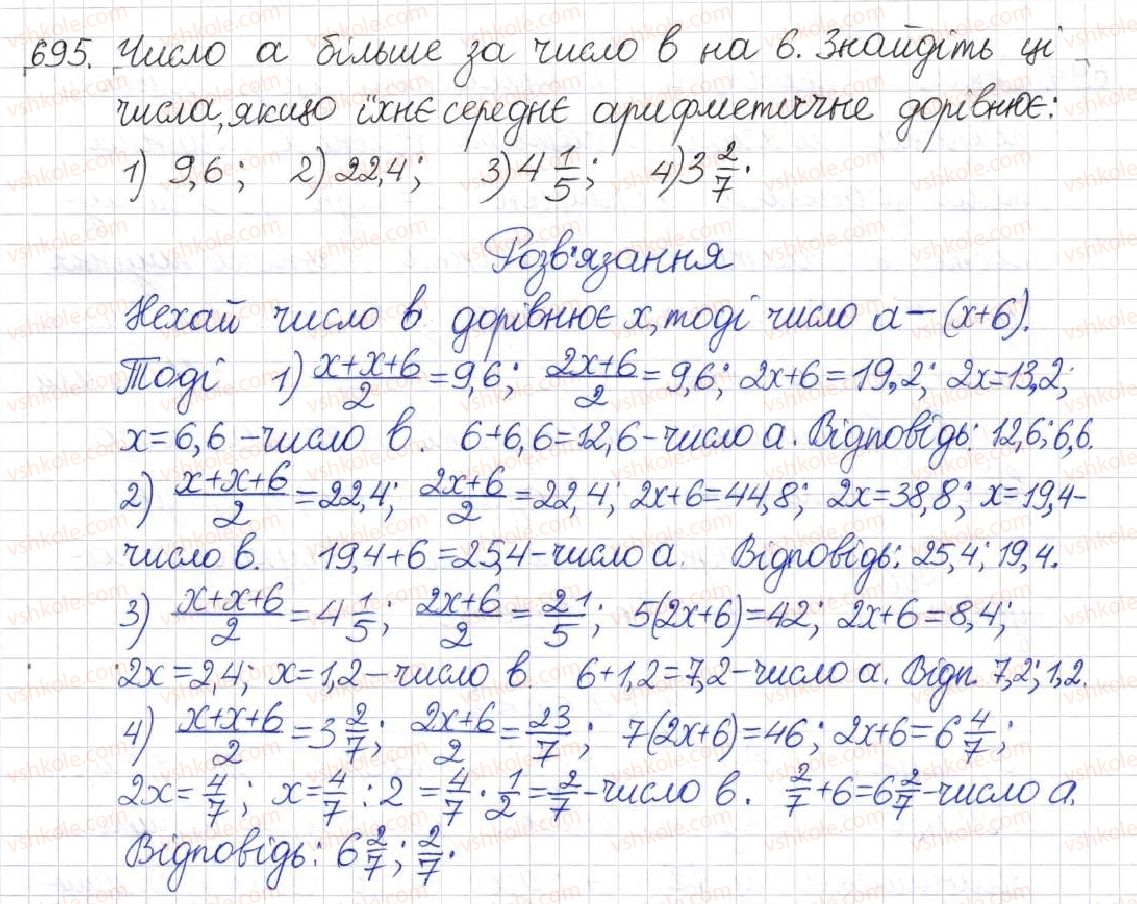 695. Число а більше за число в на 6. Знайдіть ці
числа, якщо їхнє середнє арифметичне дорівнює:
1) 9,6; 2) 22,4; 3) 4 1/5; 4) 3 2/7.
Розв'язання
Нехай число в дорівнює х, тоді число а – (х+6).
Тоді 1) (х+х+6)/2 = 9,6; (2х+6)/2 = 9,6; 2х+6=19,2; 2х=13,2;
х=6,6 – число в. 6+6,6=12,6 – число а. Відповідь: 12,6; 6,6.
2) (х+х+6)/2 = 22,4; (2х+6)/2 = 22,4; 2х+6=44,8; 2х=38,8; х=19,4–
число в. 19,4+6=25,4 – число а. Відповідь: 25,4; 19,4.
3) (х+х+6)/2 = 4 1/5; (2х+6)/2 = 21/5; 5(2х+6)=42; 2х+6=8,4;
2х=2,4; х=1,2 – число в. 6+1,2=7,2 – число а. Відп. 7,2; 1,2.
4) (х+х+6)/2 = 3 2/7; (2х+6)/2 = 23/7; 7(2х+6)=46; 2х+6=6 4/7;
2х = 4/7; х = 4/7 : 2 = 4/7 · 1/2 = 2/7 – число в. 2/7 + 6 = 6 2/7 – число а.
Відповідь: 6 2/7; 2/7.